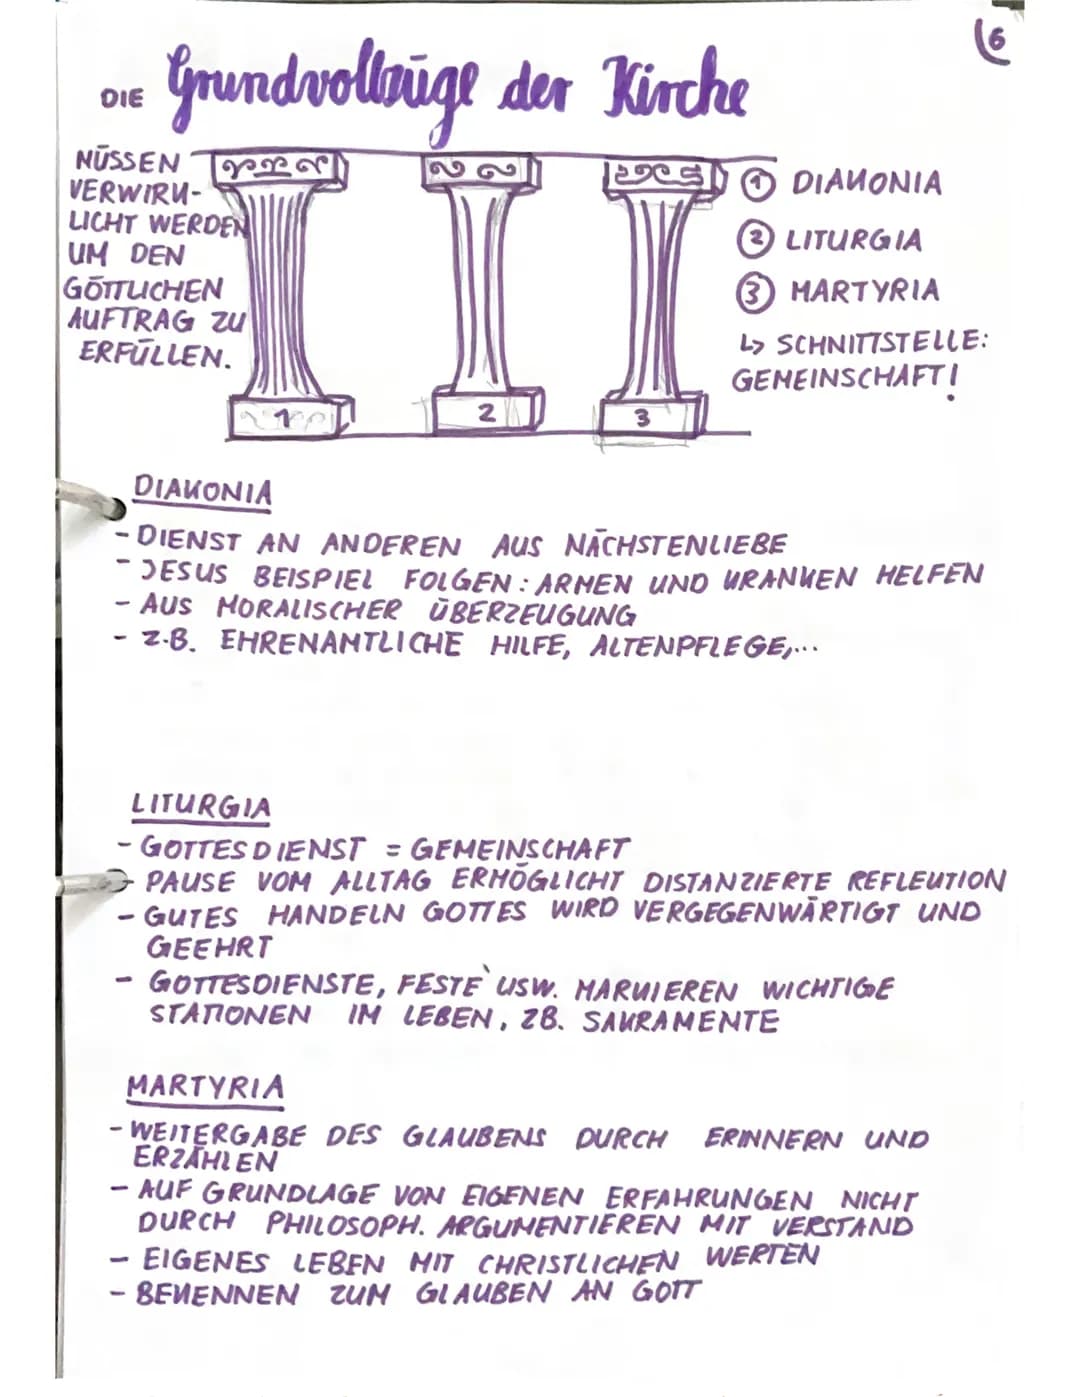 6
DIE Grundvollzüge der Kirche
MÜSSEN
VERWIRK-
LICHT WERDEN
UM DEN
GÖTTLICHEN
AUFTRAG ZU
ERFÜLLEN.
① DIAKONIA
② LITURGIA
③ MARTYRIA
↳ SCHNITTSTELLE:
GEMEINSCHAFT!
1 2 3
DIAKONIA
- DIENST AN ANDEREN AUS NÄCHSTENLIEBE
- JESUS BEISPIEL FOLGEN: ARMEN UND KRANKEN HELFEN
- AUS MORALISCHER ÜBERZEUGUNG
- Z.B. EHRENAMTLICHE HILFE, ALTENPFLEGE,...
LITURGIA
- GOTTESDIENST = GEMEINSCHAFT
- PAUSE VOM ALLTAG ERMÖGLICHT DISTANZIERTE REFLEKTION
- GUTES HANDELN GOTTES WIRD VERGEGENWÄRTIGT UND
GEEHRT
- GOTTESDIENSTE, FESTE USW. MARKIEREN WICHTIGE
STATIONEN IM LEBEN, ZB. SAKRAMENTE
MARTYRIA
- WEITERGABE DES GLAUBENS DURCH ERINNERN UND
ERZÄHLEN
- AUF GRUNDLAGE VON EIGENEN ERFAHRUNGEN NICHT
DURCH PHILOSOPH. ARGUMENTIEREN MIT VERSTAND
- EIGENES LEBEN MIT CHRISTLICHEN WERTEN
- BEKENNEN ZUM GLAUBEN AN GOTT